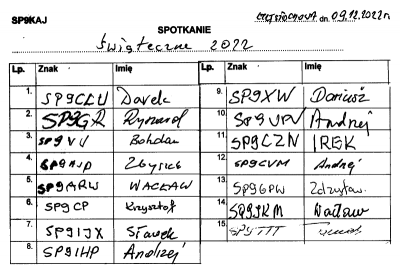 SP9KAJ
CZĘSTOCHOWA dn. 09.12.2022r
SPOTKANIE
Świąteczne 2022
Lp. Znak Imię Lp. Znak Imię
1. SP9CLU Darek
2. SP9GR Ryszard
3. SP9VJ Bohdan
4. Zbyszek
5. SP9ARW WACŁAW
6. SP9CP Krzysztof
7. SP9IJX Sławek
8. SP9IHP Andrzej
9. SP9XW Dariusz
10. SP9UPV Andrzej
11. SP9CZN IREK
12. SP9CVM Andrzej
13. SP9GPW Zdzysław
14. SP9JKM Wacław
15.